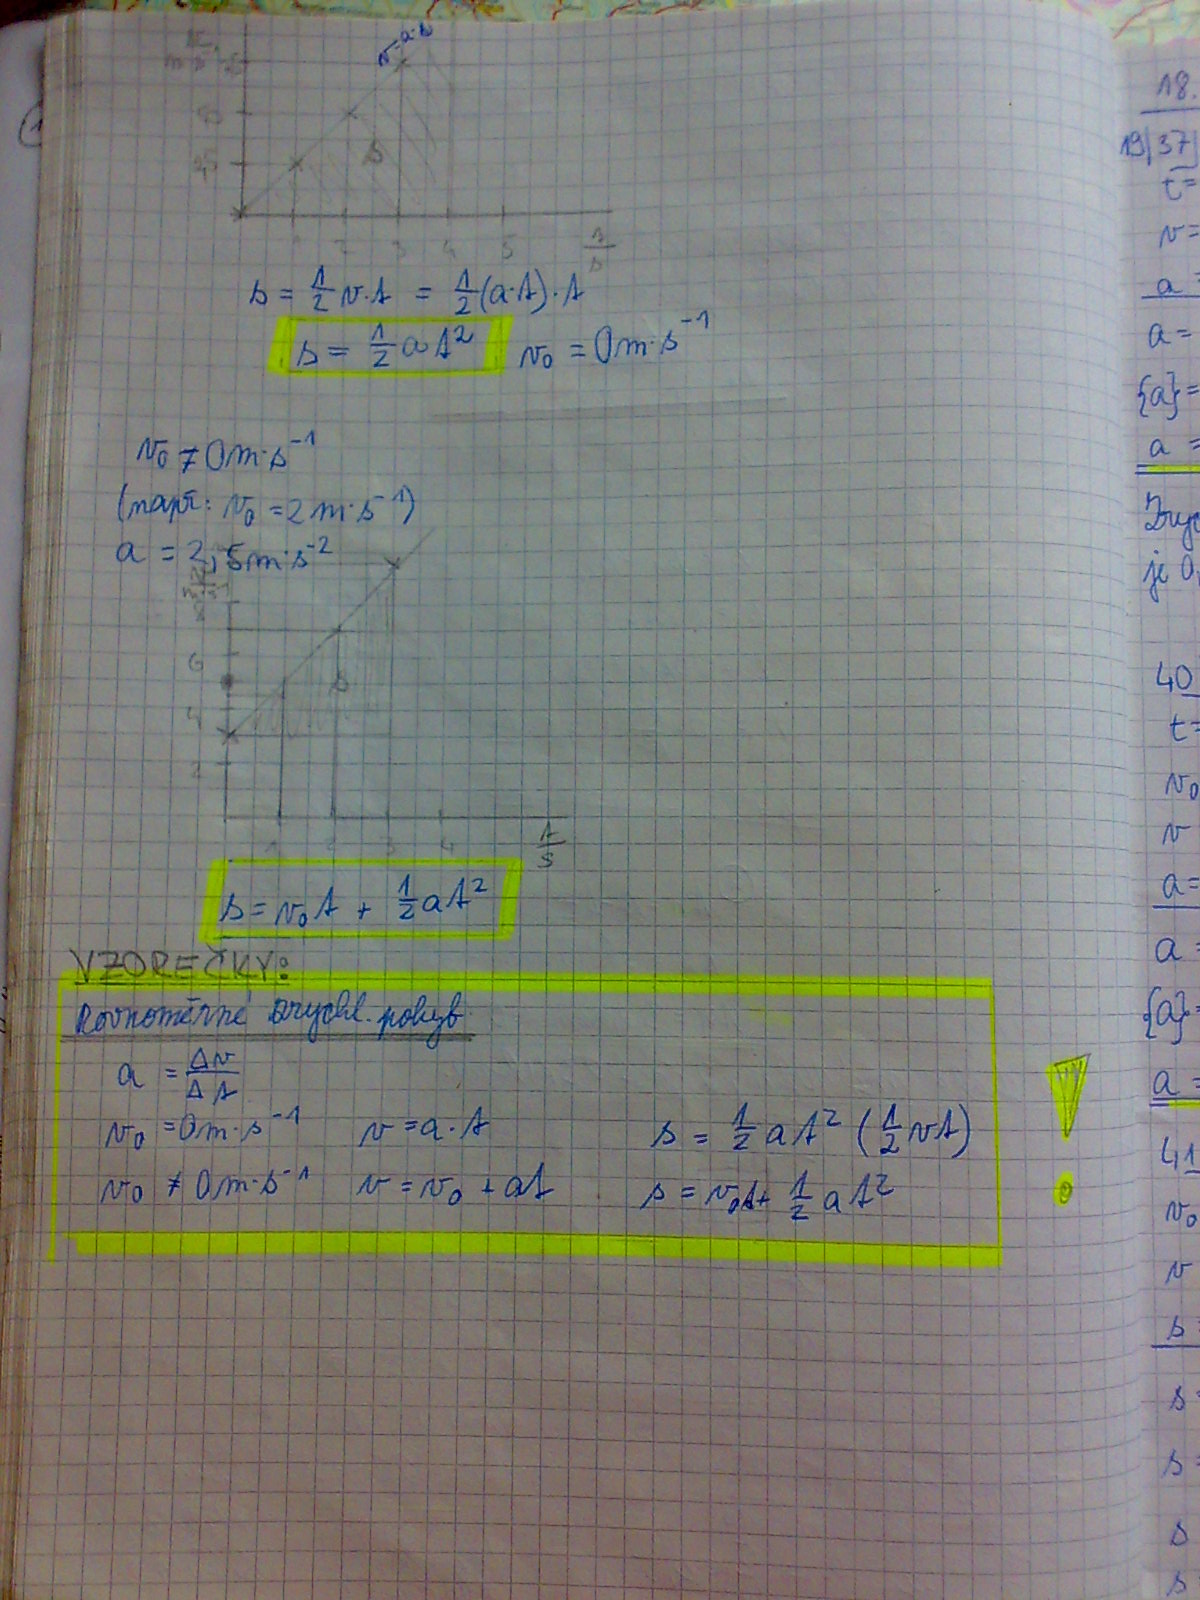 v = a·t
s
1 2 3 4 5
s = 1/2 v·t = 1/2 (a·t)·t
s = 1/2 at² v₀ = 0m·s⁻¹
v₀ ≠ 0m·s⁻¹
(např: v₀ = 2m·s⁻¹)
a = 2,5m·s⁻²
8
6
s
4
2
1 2 3 4 t/s
s = v₀t + 1/2 at²
VZOREČKY:
Rovnoměrně zrychl. pohyb
a = Δv/Δt
v₀ = 0m·s⁻¹ v = a·t s = 1/2 at² (1/2 vt)
v₀ ≠ 0m·s⁻¹ v = v₀ + at s = v₀t + 1/2 at²
!
18.
19|37|
t=
v=
a
a=
{a}=
a=
je 0,
40
t=
v₀
v
a=
a=
{a}=
a=
41
v₀
v
s
s=
s=
s
s=